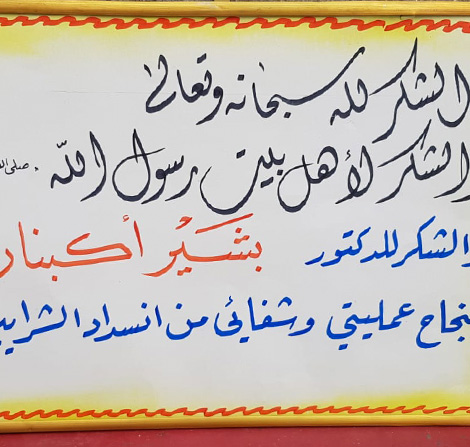 الشكر لله سبحانه وتعالى
الشكر لأهل بيت رسول الله
والشكر للدكتور بشير أكبنار
نجاح عمليتي وشفائي من انسداد الشرايي